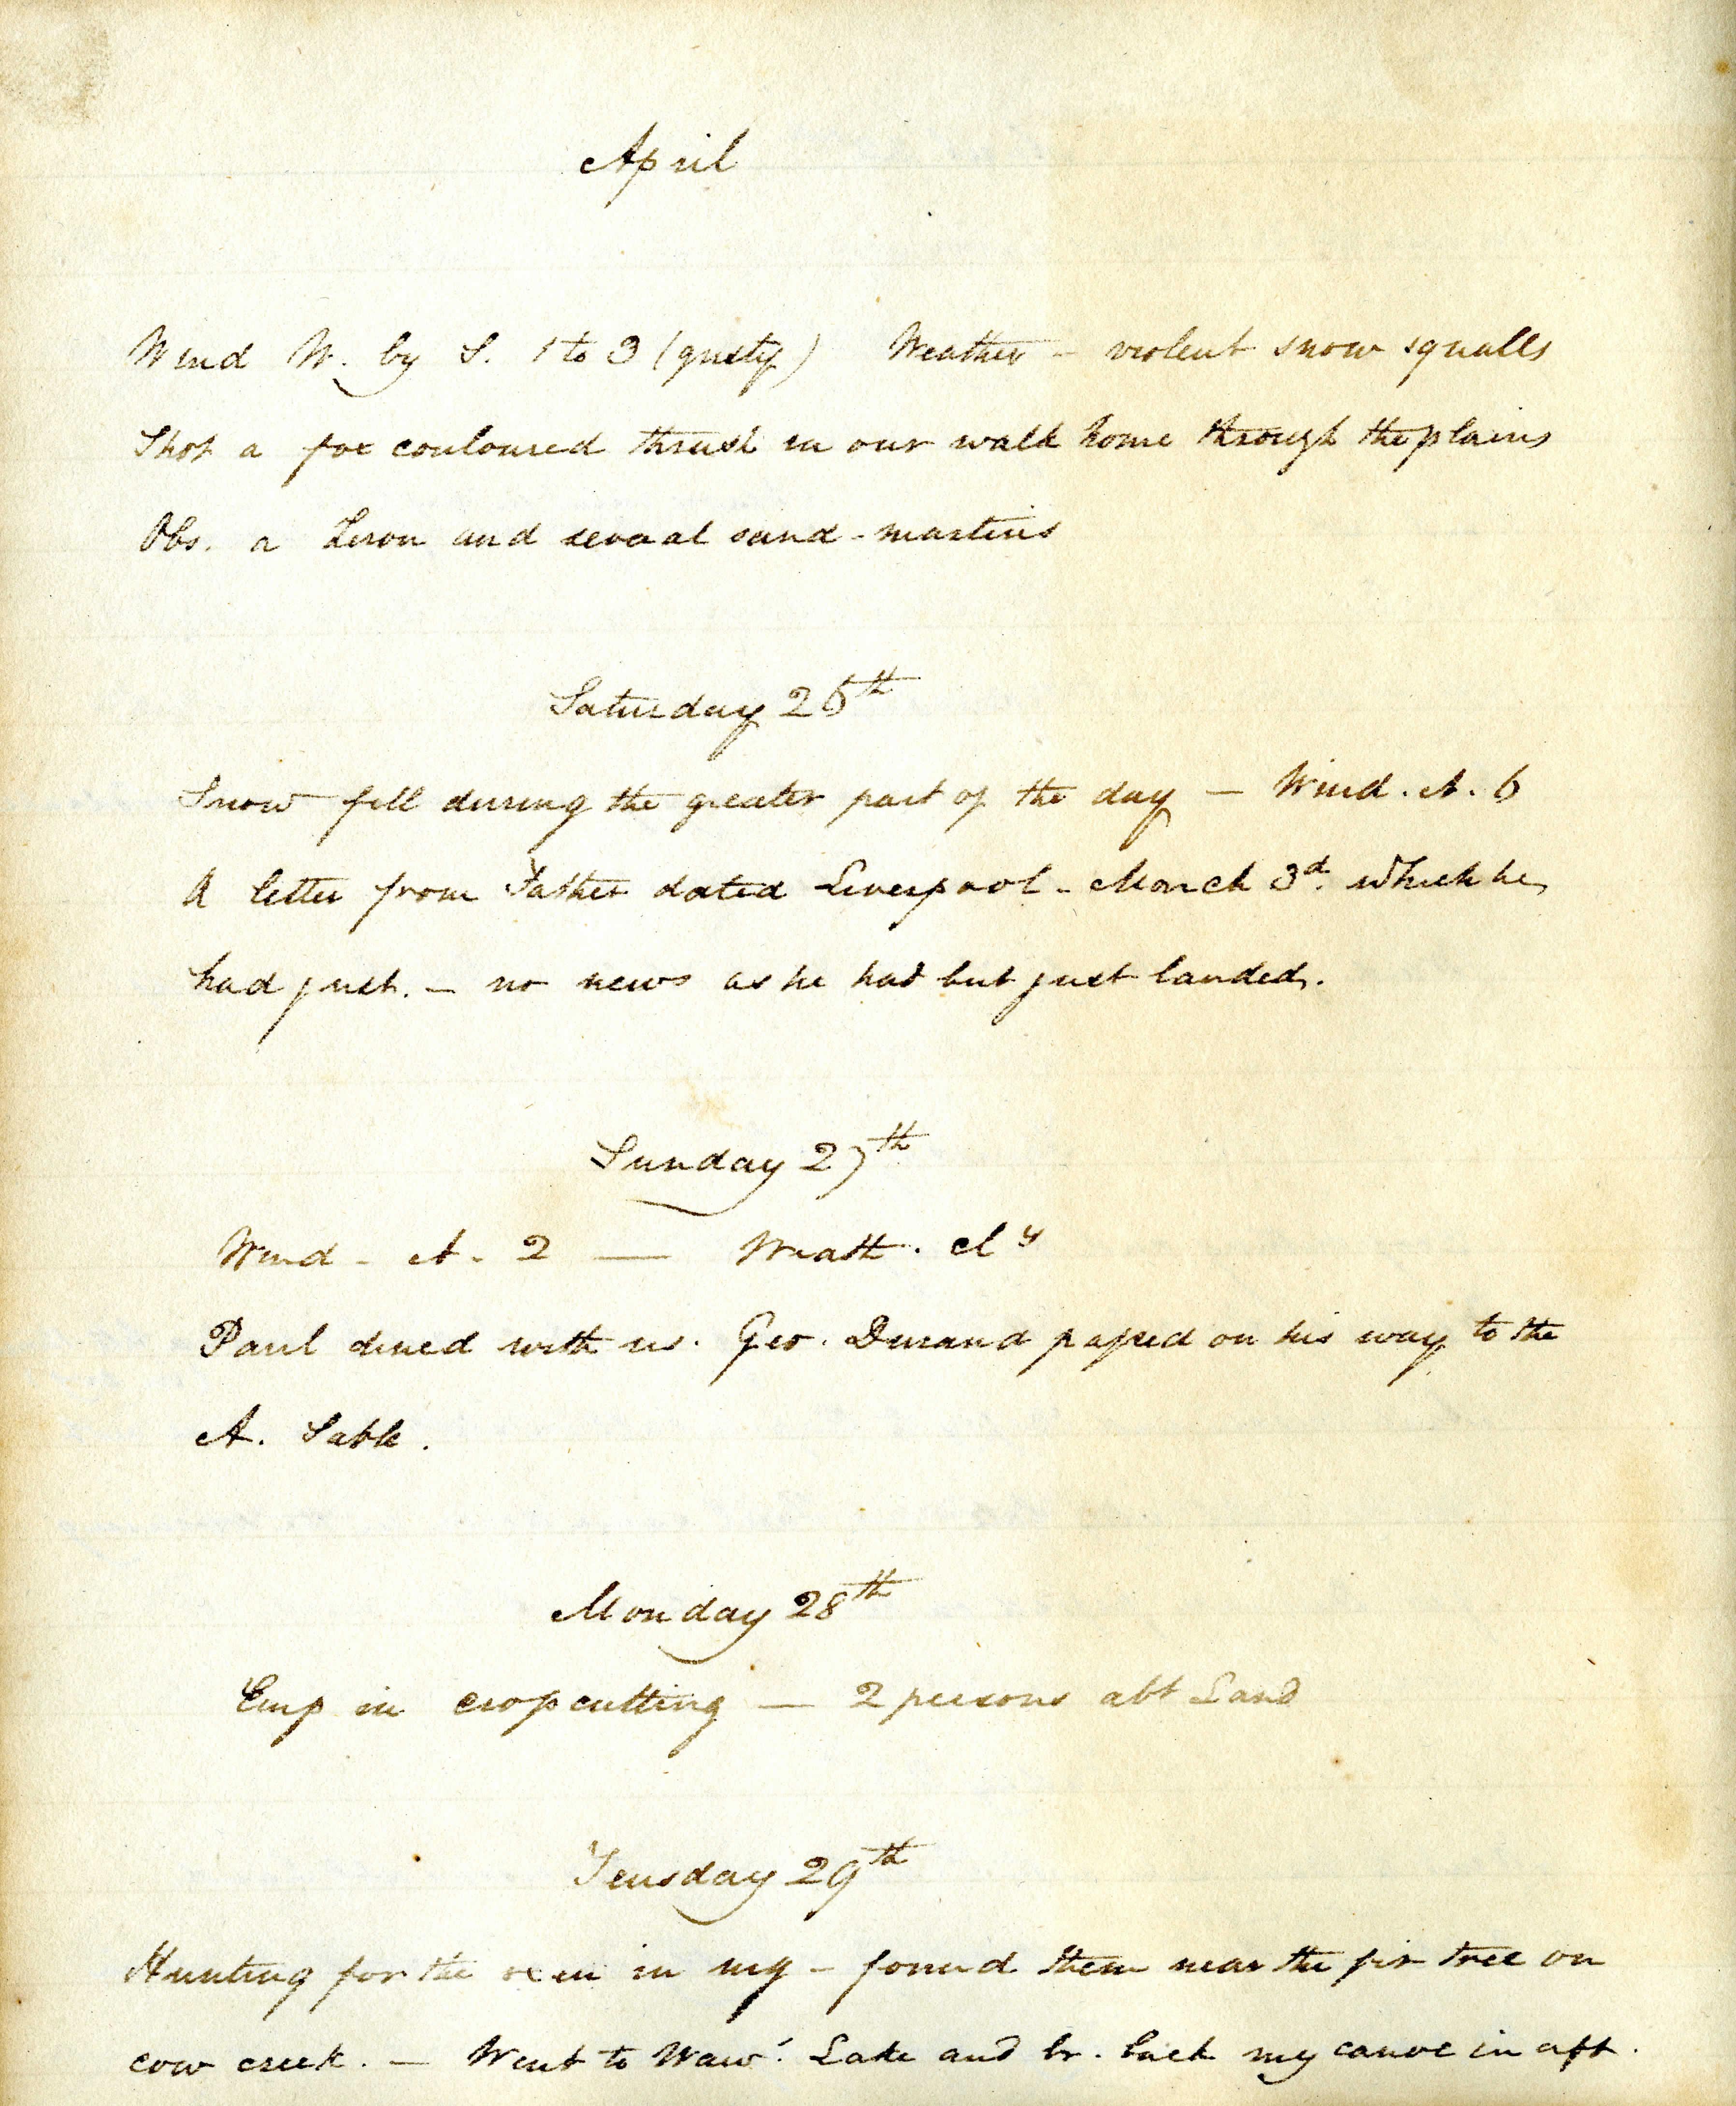 April
Wind W. by S. 1 to 3 (gusty) Weather - violent snow squalls
Shot a fox couloured thrush in our walk home through the plains
Obs. a Heron and several sand-martins
Saturday 26th
Snow fell during the greater part of the day — Wind. N. 6
A letter from Father dated Liverpool - March 3d. which he
had just. — no news as he had but just landed.
Sunday 27th
Wind - N. 2 — Weath. cly
Paul dined with us. Geo. Durand passed on his way to the
A. Sable.
Monday 28th
Emp in crop cutting — 2 persons abt Land
Teusday 29th
Hunting for the oxen in mg - found them near the fir tree on
cow creek. — Went to Waw. Lake and br. back my canoe in aft.